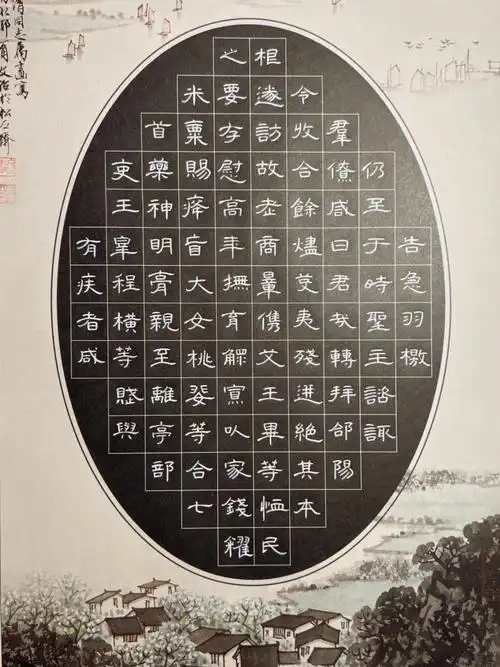 告急羽檄
仍至于時聖主諮諏
羣僚咸曰君哉轉拜郃陽
令收合餘燼芟夷殘迸絕其本
根遂訪故老商量儁艾王畢等恤民
之要存慰高年撫育鰥寡以家錢糴
米粟賜癃盲大女桃婓等合七
首藥神明膏親至離亭部
吏王宰程橫等賦與
有疾者咸